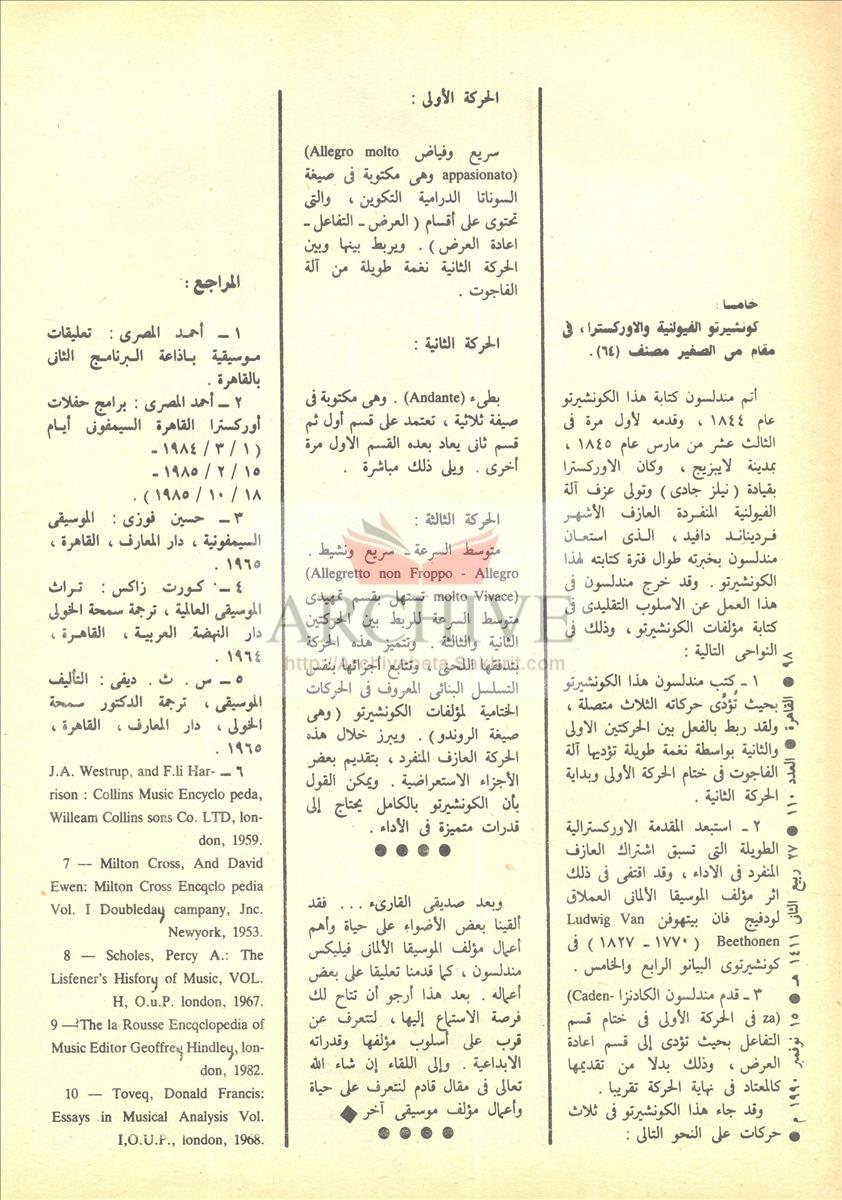 خامسا :
كونشيرتو الفيولنية والاوركسترا ، فى
مقام مى الصغير مصنف (٦٤) .
أتم مندلسون كتابة هذا الكونشيرتو
عام ١٨٤٤ ، وقدمه لأول مرة فى
الثالث عشر من مارس عام ١٨٤٥ ،
بمدينة لايبزيج ، وكان الاوركسترا
بقيادة ( نيلز جادى ) وتولى عزف آلة
الفيولنية المنفردة العازف الأشهر
فرديناند دافيد ، الذى استعان
مندلسون بخبرته طوال فترة كتابته لهذا
الكونشيرتو . وقد خرج مندلسون فى
هذا العمل عن الاسلوب التقليدى فى
كتابة مؤلفات الكونشيرتو ، وذلك فى
النواحى التالية :
١ ـ كتب مندلسون هذا الكونشيرتو
بحيث تُؤدَّى حركاته الثلاث متصلة ،
ولقد ربط بالفعل بين الحركتين الاولى
والثانية بواسطة نغمة طويلة تؤديها آلة
الفاجوت فى ختام الحركة الأولى وبداية
الحركة الثانية .
٢ ـ استبعد المقدمة الاوركسترالية
الطويلة التى تسبق اشتراك العازف
المنفرد فى الاداء ، وقد اقتفى فى ذلك
اثر مؤلف الموسيقا الألمانى العملاق
لودفيج فان بيتهوفن Ludwig Van
Beethonen ( ١٧٧٠ ـ ١٨٢٧ ) فى
كونشيرتوى البيانو الرابع والخامس .
٣ ـ قدم مندلسون الكادنزا (Caden-
za) فى الحركة الأولى فى ختام قسم
التفاعل بحيث تؤدى إلى قسم اعادة
العرض ، وذلك بدلا من تقديمها
كالمعتاد فى نهاية الحركة تقريبا .
وقد جاء هذا الكونشيرتو فى ثلاث
حركات على النحو التالى :
الحركة الأولى :
سريع وفياض (Allegro molto
appasionato) وهى مكتوبة فى صيغة
السوناتا الدرامية التكوين ، والتى
تحتوى على أقسام ( العرض ـ التفاعل ـ
اعادة العرض ) . ويربط بينها وبين
الحركة الثانية نغمة طويلة من آلة
الفاجوت .
الحركة الثانية :
بطىء (Andante) . وهى مكتوبة فى
صيغة ثلاثية ، تعتمد على قسم أول ثم
قسم ثانى يعاد بعده القسم الاول مرة
أخرى . ويلى ذلك مباشرة .
الحركة الثالثة :
متوسط السرعة ـ سريع ونشيط .
(Allegretto non Froppo - Allegro
molto Vivace) تستهل بقسم تمهيدى
متوسط السرعة للربط بين الحركتين
الثانية والثالثة . وتتميز هذه الحركة
بتدفقها اللحنى ، وتتابع أجزائها بنفس
التسلسل البنائى المعروف فى الحركات
الختامية لمؤلفات الكونشيرتو ( وهى
صيغة الروندو ) . ويبرز خلال هذه
الحركة العازف المنفرد ، بتقديم بعض
الأجزاء الاستعراضية . ويمكن القول
بأن الكونشيرتو بالكامل يحتاج إلى
قدرات متميزة فى الأداء .
وبعد صديقى القارىء ... فقد
ألقينا بعض الأضواء على حياة وأهم
أعمال مؤلف الموسيقا الألمانى فيليكس
مندلسون ، كما قدمنا تعليقا على بعض
أعماله . بعد هذا أرجو أن تتاح لك
فرصة الاستماع إليها ، لتتعرف عن
قرب على أسلوب مؤلفها وقدراته
الابداعية . وإلى اللقاء إن شاء الله
تعالى فى مقال قادم لنتعرف على حياة
وأعمال مؤلف موسيقى آخر
المراجع :
١ ـ أحمد المصرى : تعليقات
موسيقية باذاعة البرنامج الثانى
بالقاهرة .
٢ ـ أحمد المصرى : برامج حفلات
أوركسترا القاهرة السيمفونى أيام
( ١ / ٣ / ١٩٨٤ ـ
١٥ / ٢ / ١٩٨٥ ـ
١٨ / ١٠ / ١٩٨٥ ) .
٣ ـ حسين فوزى : الموسيقى
السيمفونية ، دار المعارف ، القاهرة ،
١٩٦٥ .
٤ ـ كورت زاكس : تراث
الموسيقى العالمية ، ترجمة سمحة الخولى
دار النهضة العربية ، القاهرة ،
١٩٦٤
٥ ـ س . ث . ديفى : التأليف
الموسيقى ، ترجمة الدكتور سمحة
الخولى ، دار المعارف ، القاهرة ،
١٩٦٥ .
٦ — J.A. Westrup, and F.li Har-
rison : Collins Music Encyclo peda,
Willeam Collins sons Co. LTD, lon-
don, 1959.
7 — Milton Cross, And David
Ewen: Milton Cross Encqclo pedia
Vol. I Doubleday campany, Jnc.
Newyork, 1953.
8 — Scholes, Percy A.: The
Lisfener's Hisfory of Music, VOL.
H, O.u.P. london, 1967.
9 — The la Rousse Encqclopedia of
Music Editor Geoffrey Hindley, lon-
don, 1982.
10 — Toveq, Donald Francis:
Essays in Musical Analysis Vol.
I,O.U.P., london, 1968.
٩٨ ● القاهرة ● العدد ١١٠ ● ٢٧ ربيع الثانى ١٤١١ هـ ● ١٥ نوفمبر ١٩٩٠ م ●
ARCHIVE
http://Archivebeta.Sakhrit.com